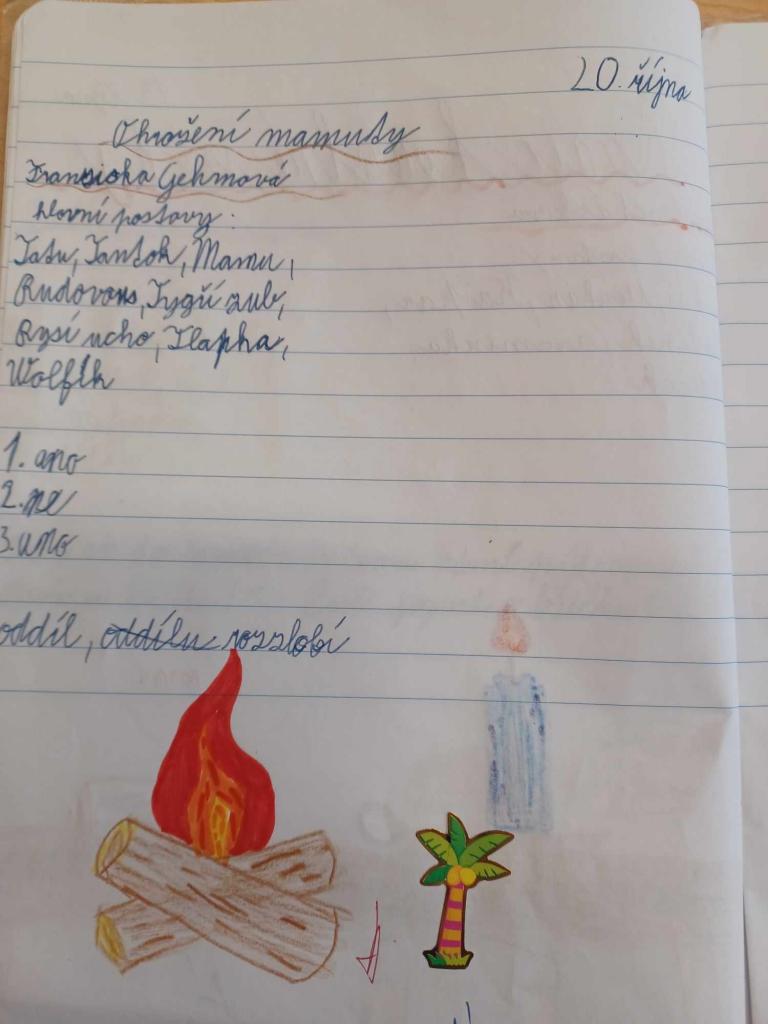 20. října
Ohrožení mamuty
Franziska Gehmová
hlavní postavy:
Tatu, Tantok, Mamu,
Rudovous, Tygří zub,
Rysí ucho, Tlapka,
Wolfík
1. ano
2. ne
3. ano
oddíl, oddílu rozzlobí